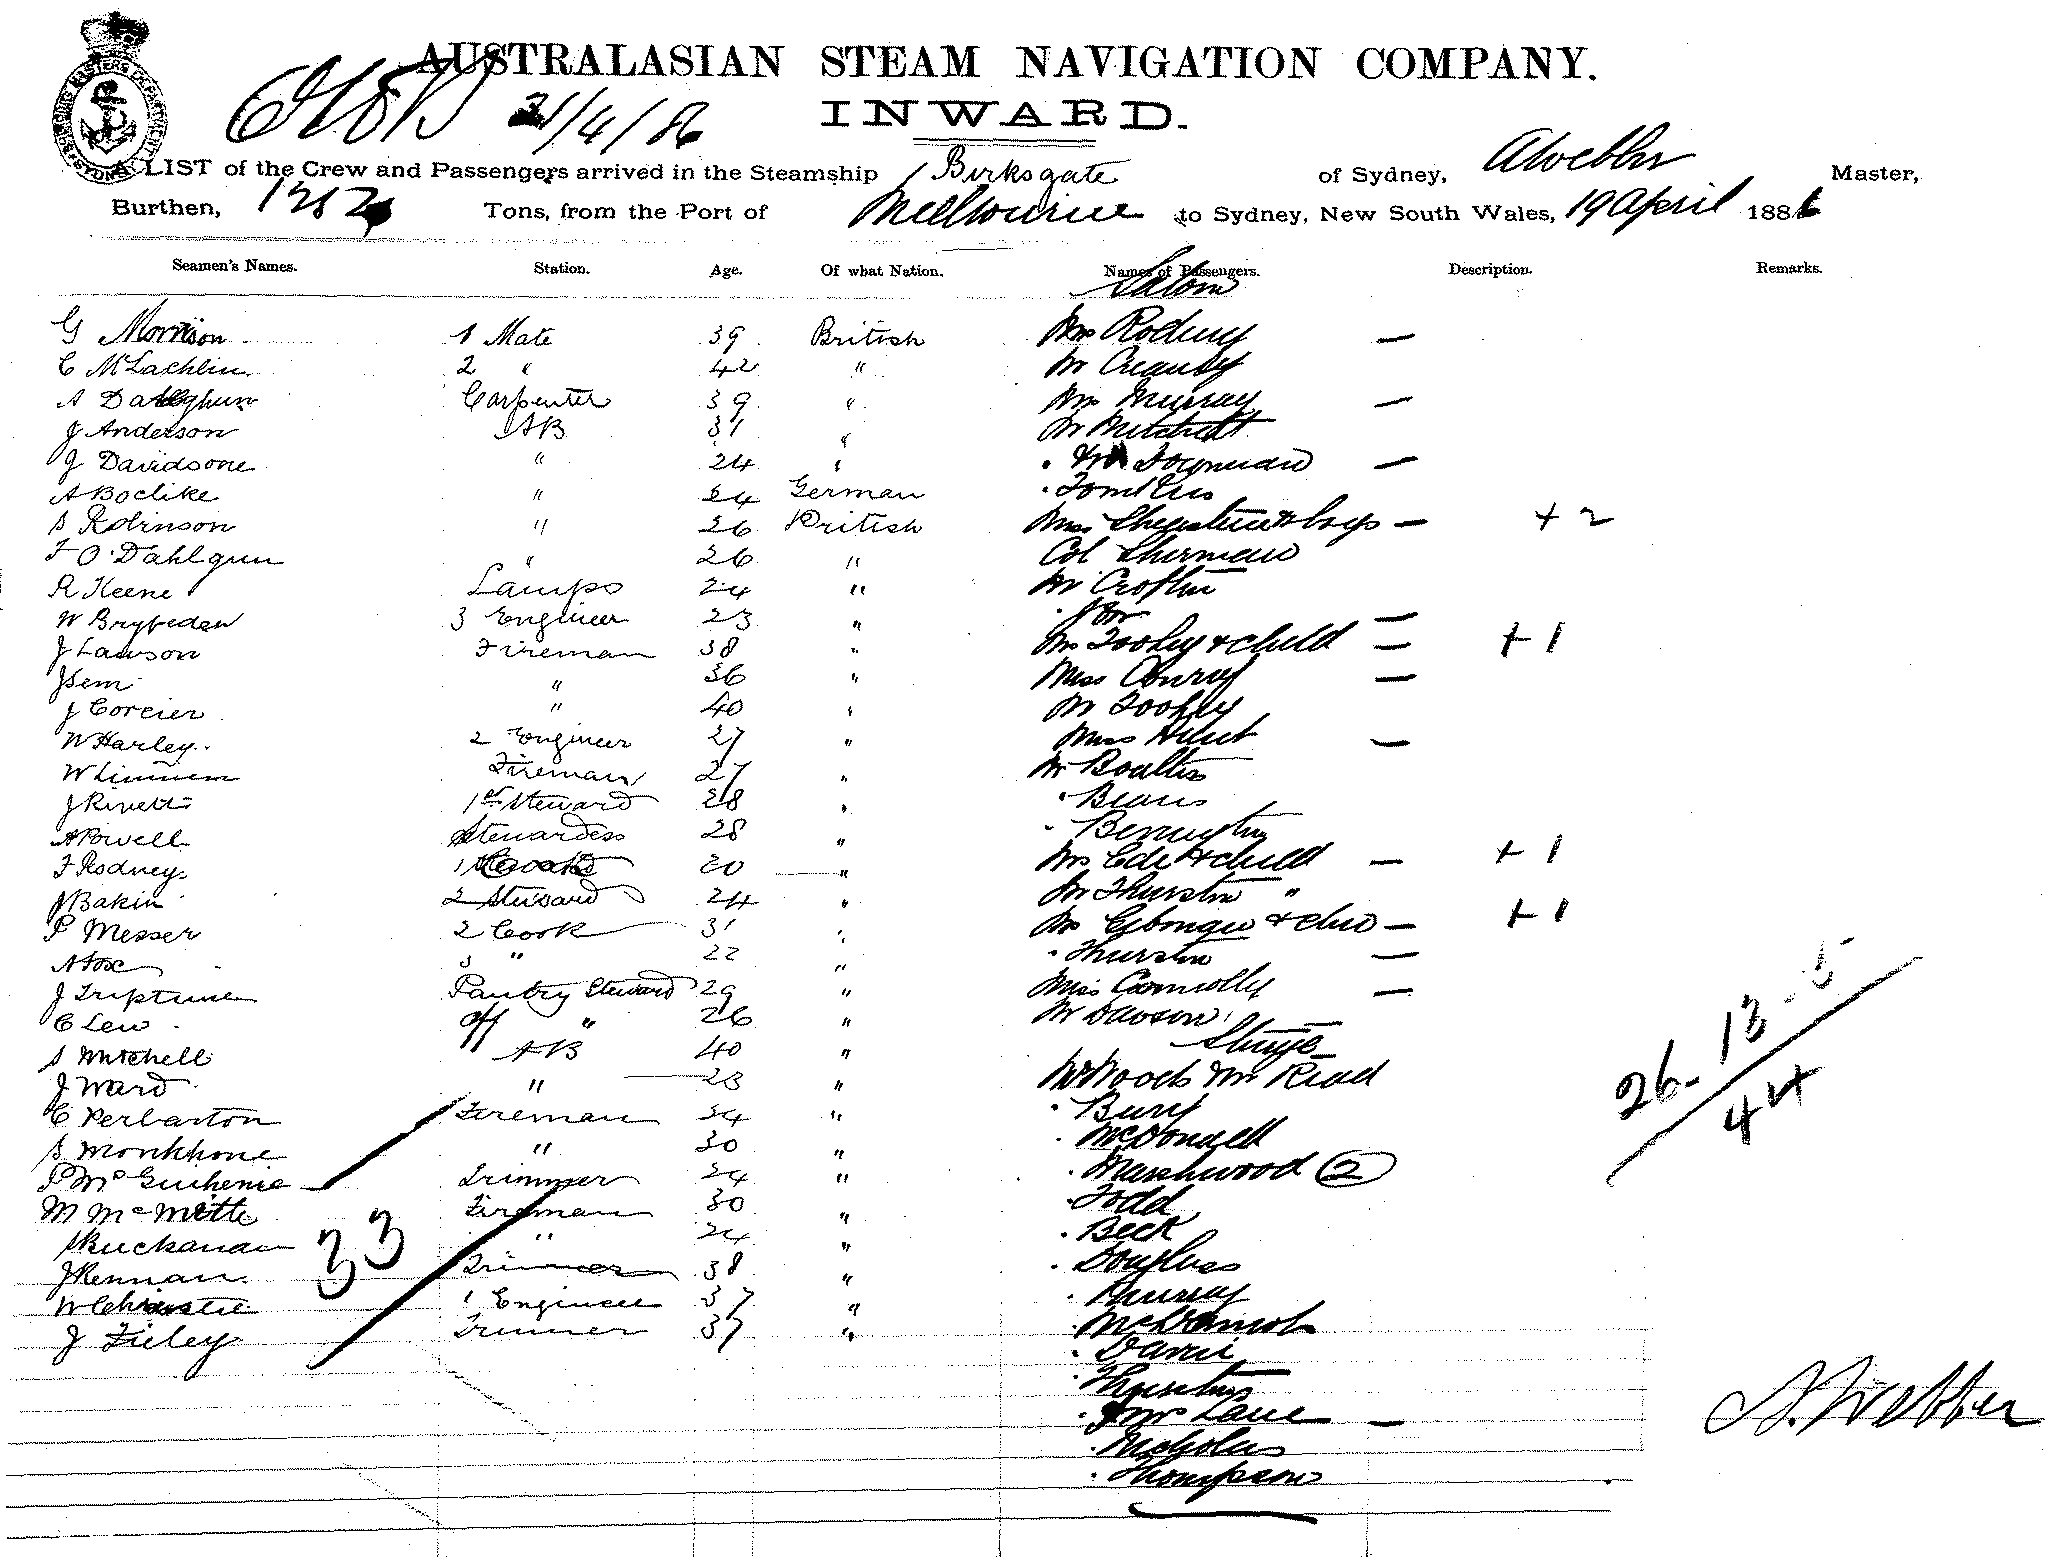 AUSTRALASIAN STEAM NAVIGATION COMPANY.
21/4/86 INWARD.
A LIST of the Crew and Passengers arrived in the Steamship Birksgate of Sydney, A Webber Master,
Burthen, Tons, from the Port of Melbourne to Sydney, New South Wales, 19 April 1886
Seamen's Names. Station. Age. Of what Nation. Names of Passengers. Description. Remarks.
Saloon
G Morrison 1 Mate 39 British Mrs Rodney —
C McLachlin 2 " 42 " Mr
A Carpenter 39 " Mrs Murray —
J Anderson AB 31 " Mr Mitchell
J Davidsone " 24 " —
A Boclike " 24 German
S Robinson " 26 British Miss boys — + 2
F O'Dahlgun " 26 " Col Sherman
R Keene Lamps 24 " Mr Croftin
W 3 Engineer 23 " —
J Lawson Fireman 38 " Mrs Toohey & child — + 1
J Sem " 36 " Miss Conroy —
J Corcier " 40 " Mr Toohey
W Harley 2 Engineer 27 " Miss Hunt —
W Fireman 27 " Mr
J Rivett 1st Steward 28 "
A Powell Stewardess 28 "
F Rodney 1 Cook 20 " Mrs Ede & child — + 1
J Bakin 2 Steward 24 " Mr Thurston "
P Messer 2 Cook 31 " Mrs & — + 1
A Fox 3 " 22 " Thurston —
J Triptune Pantry Steward 29 " Miss Connolly —
C Lew off " 26 " Mr Dawson
S Mitchell AB 40 " Steerge
J Ward " 23 " Mr Woods Mr Read
C Perbarton Fireman 34 " Bury
S Monkhone " 30 " McDonald
P McGuihenie Trimmer 24 " Marshwood 2
M McMitte Fireman 30 " Todd
Buchanan " 24 " Beck
J Rennan Trimmer 38 " Douglass
W Christie 1 Engineer 37 " Murray
J Fieley Trimmer 37 "
33
26-13-5
44
Mrs Lane —
Nicholas
Thompson
A. Webber